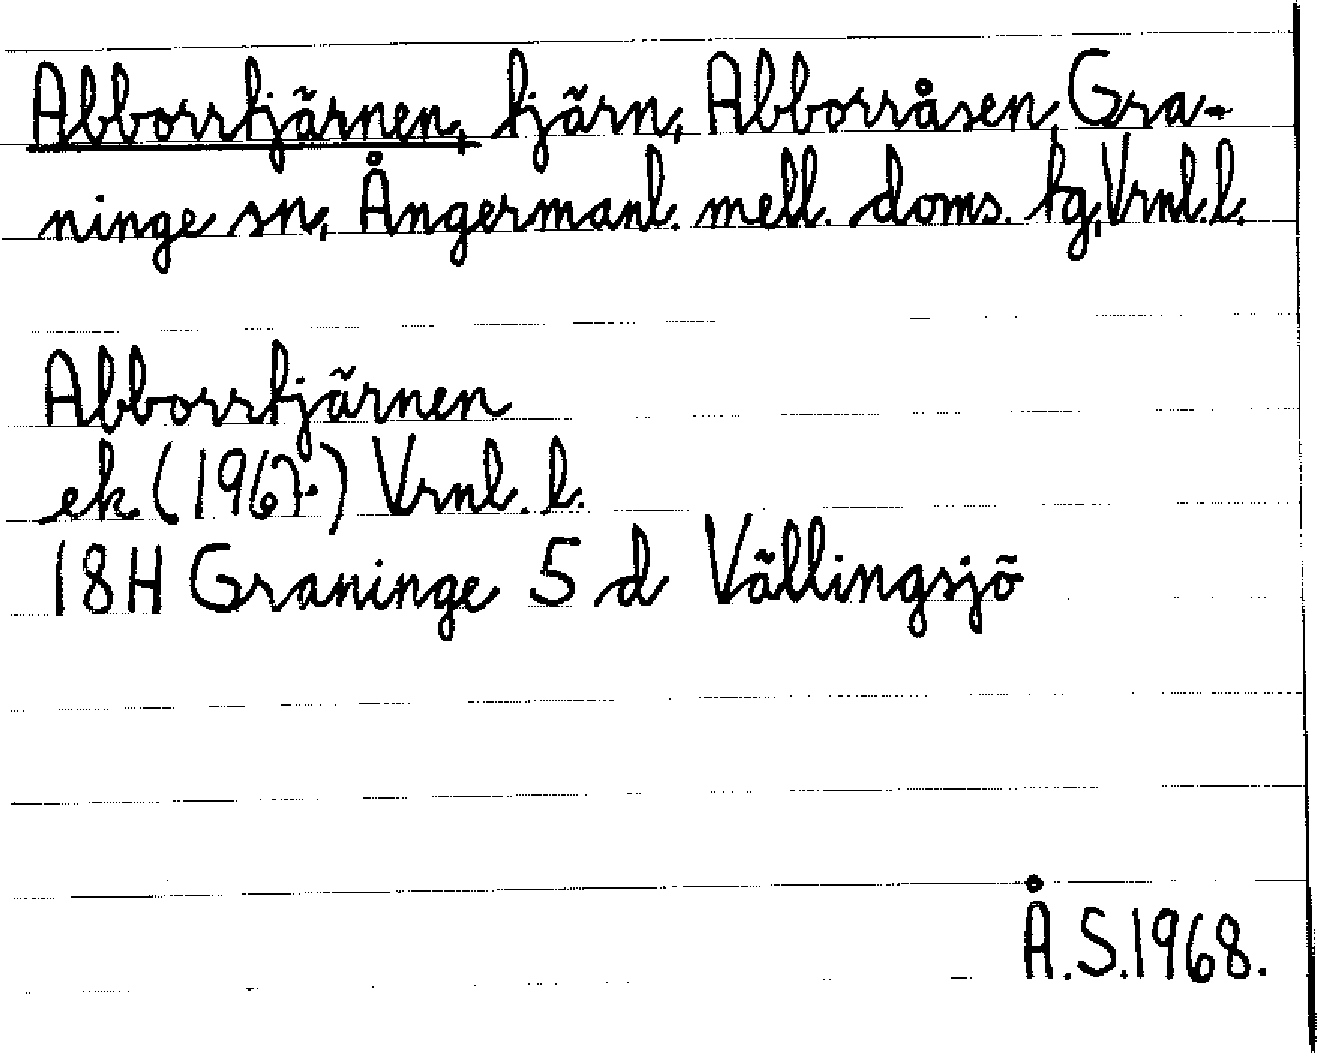 Abborrtjärnen, tjärn, Abborråsen, Gra-
ninge sn, Ångermanl. mell. doms. tg, Vrnl.l.
Abborrtjärnen
ek. (1967.) Vrnl. l.
18H Graninge 5 d Vällingsjö
Å.S.1968.